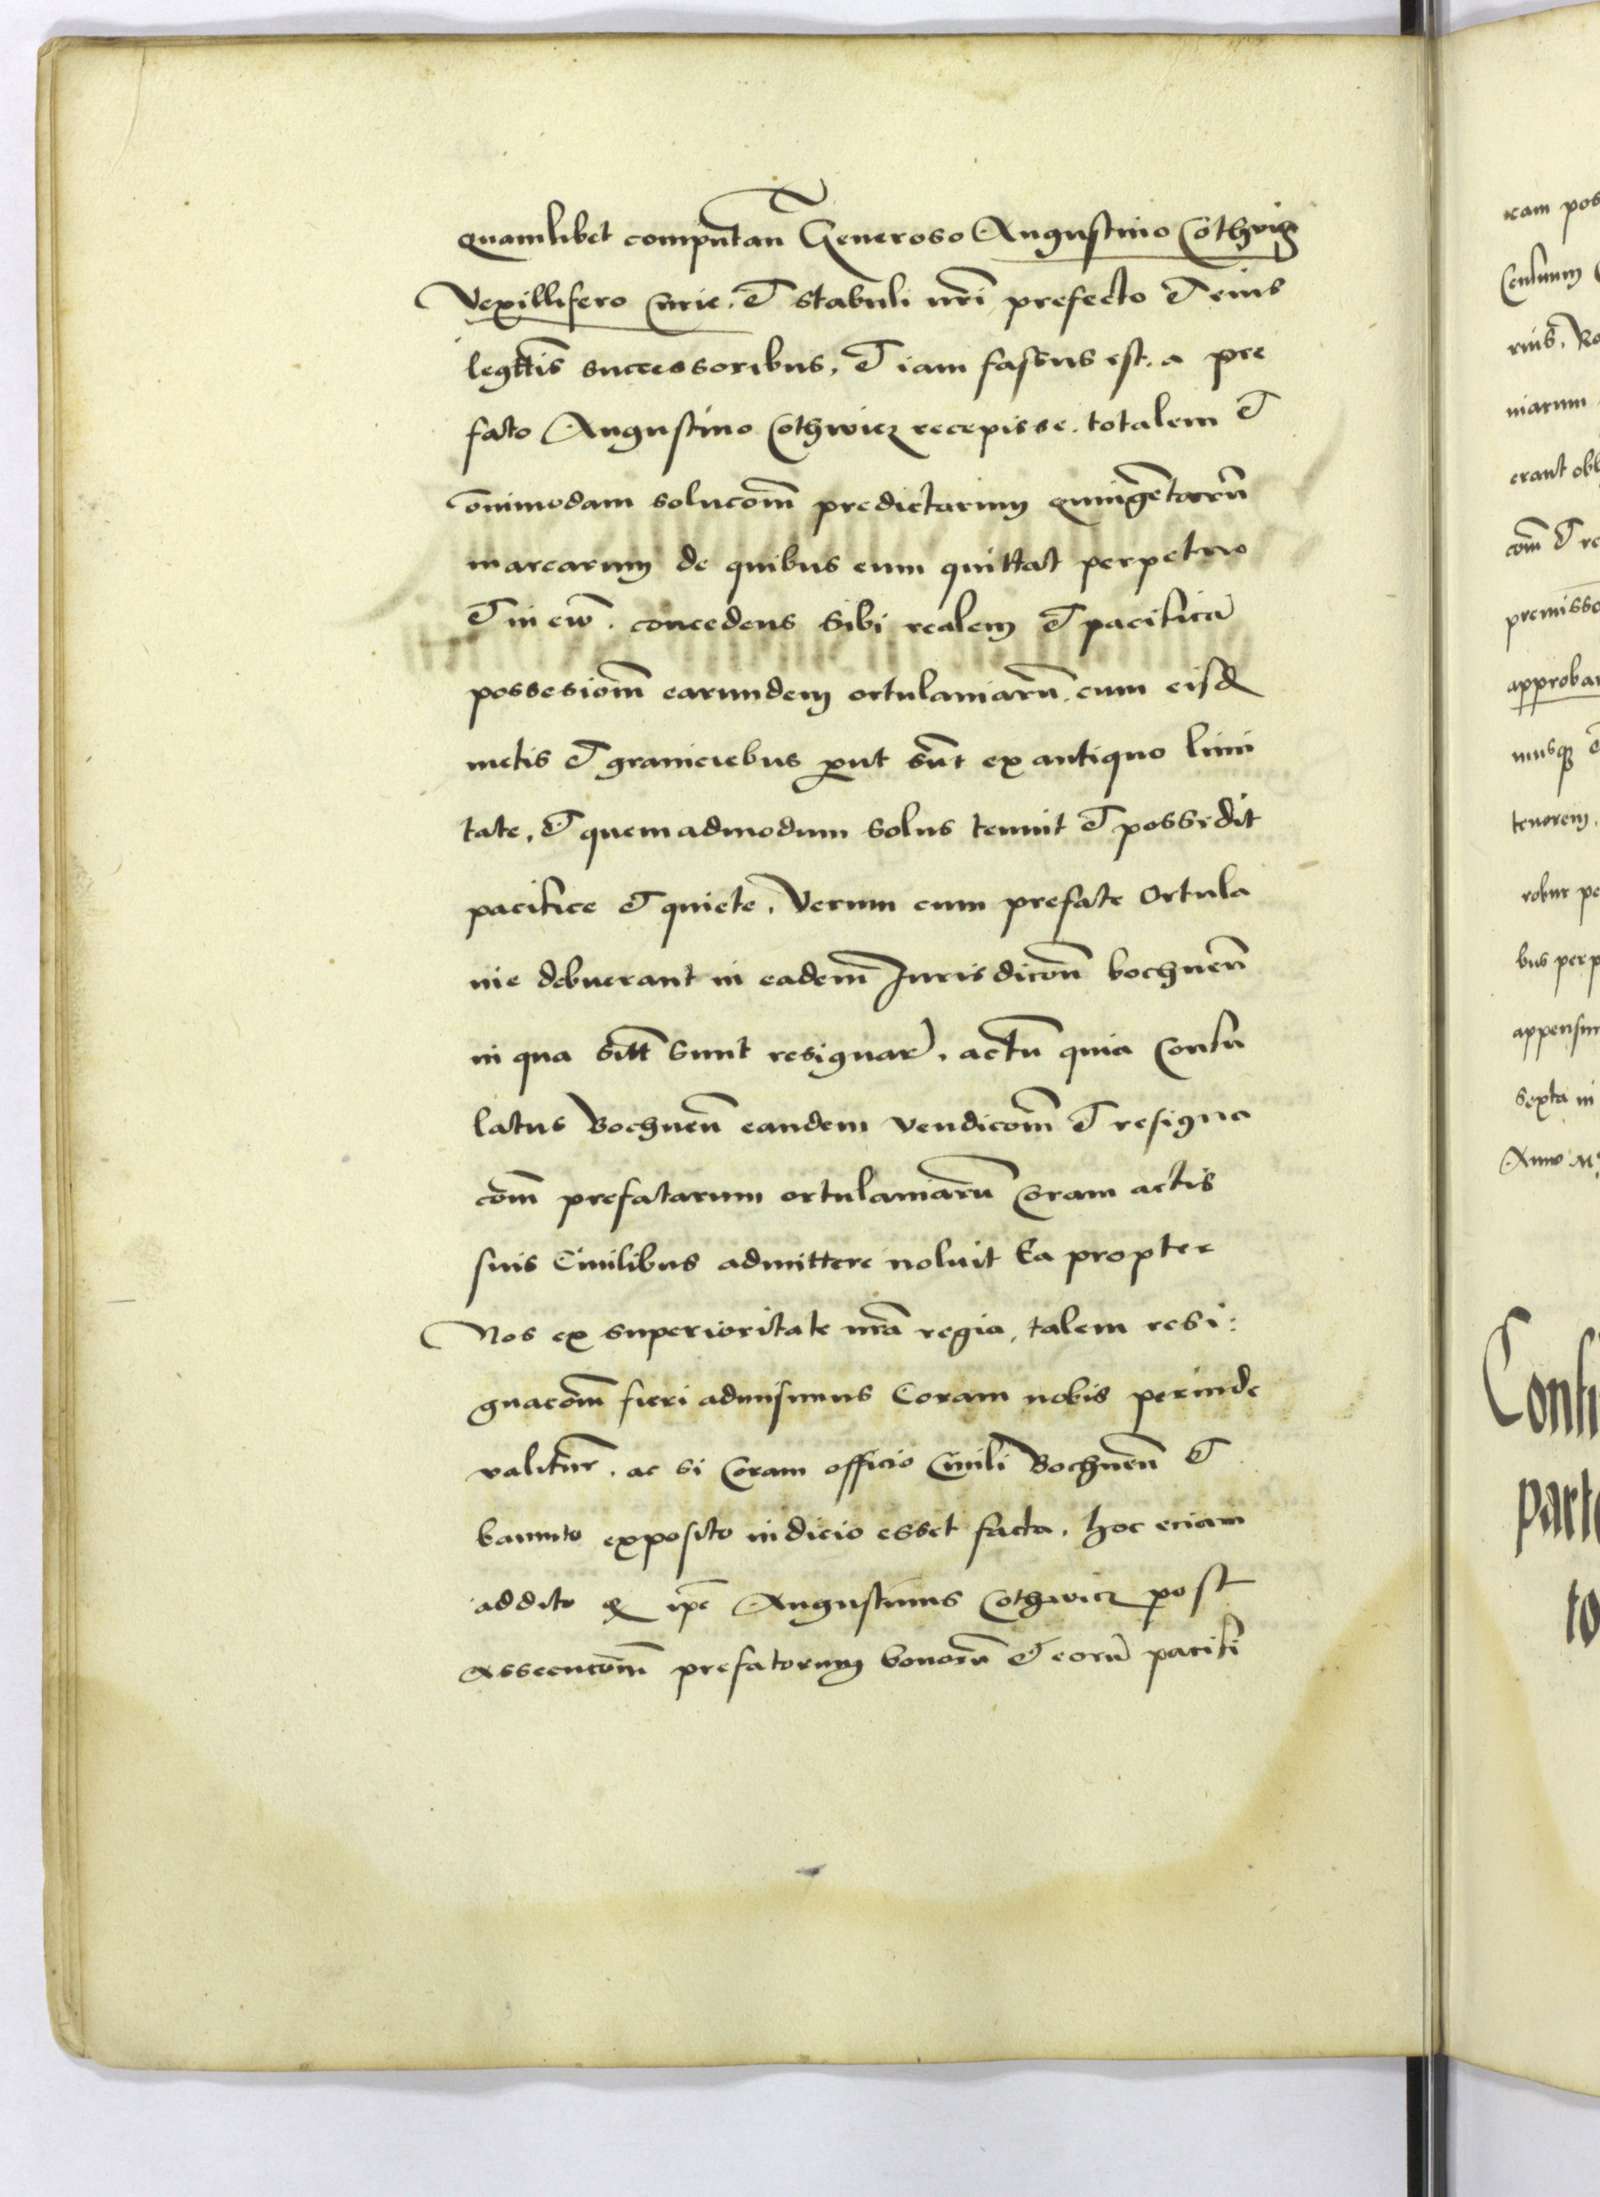 quamlibet computan̄ Generoso Augustino Cothvig
Vexillifero Curie. et stabuli nr̄i prefecto et eius
legittīs successoribus, et iam fassus est. a pre
fato Augustino Cothwicz recepisse. totalem et
om̄imodam solucoēm predictarum quingētarū
marcarum de quibus eum quittat perpetuo
et in ewm̄. concedens sibi realem et pacificā
possesionm̄ earundem ortulaniarū. cum eisdē
metis et graniciebus prout sūnt ex antiquo limi
tate, et quemadmodum solus tenuit et possidit
pacifice et quiete. Verum cum prefate Ortula
nie debuerant in eadem Jurisdicōn bochnēn̄
in qua sitt̄ sunt resignarȩ̄. actū quia Consu
latus Bochnen̄ eandem vendicom̄ et resigna
com̄ prefatarum ortulaniarū Coram actis
suis Ciuilibus admittere noluit Ea propter
Nos ex superioritate nrā regia, talem resi:
gnacom̄ fieri admisimus Coram nobis perinde
valitur̄. ac si Coram officio Ciuili Bochnen̄ et
bannito exposito iudicio esset facta. hoc eciam
addito qd ipē Augustinus Cothwicz post
assecucom̄ prefatorum bonorū et eorū pacifi
ream pos
rius. Ro
niarum
erant obl
com̄ et re
premisso
approbar
musqꝫ
tenorem.
robur pe
bus perp
appensum
sexta in
Anno M
Confi
parte
to